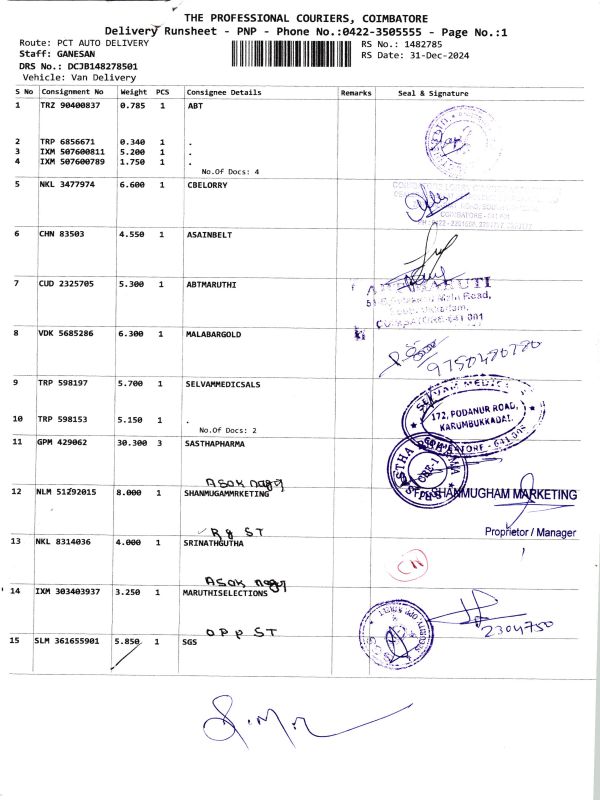 THE PROFESSIONAL COURIERS, COIMBATORE
Delivery Runsheet - PNP - Phone No.:0422-3505555 - Page No.:1
Route: PCT AUTO DELIVERY
RS No.: 1482785
Staff: GANESAN
RS Date: 31-Dec-2024
DRS No.: DCJB148278501
Vehicle: Van Delivery
S No Consignment No Weight PCS Consignee Details Remarks Seal & Signature
1 TRZ 90400837 0.785 1 ABT
2 TRP 6856671 0.340 1 .
3 IXM 507600811 5.200 1 .
4 IXM 507600789 1.750 1 .
No.Of Docs: 4
5 NKL 3477974 6.600 1 CBELORRY
COIMBATORE - 641 001
6 CHN 83503 4.550 1 ASAINBELT
7 CUD 2325705 5.300 1 ABTMARUTHI
MARUTI
Main Road,
COIMBATORE-641 001
8 VDK 5685286 6.300 1 MALABARGOLD
9750480780
9 TRP 598197 5.700 1 SELVAMMEDICSALS
SELVAM MEDICAL
172, PODANUR ROAD,
KARUMBUKKADAI,
COIMBATORE - 641 008
10 TRP 598153 5.150 1 .
No.Of Docs: 2
11 GPM 429062 30.300 3 SASTHAPHARMA
SASTHA PHARMA
CBE-1
Asok nagr
12 NLM 51292015 8.000 1 SHANMUGAMMRKETING
SHANMUGHAM MARKETING
Proprietor / Manager
Rg ST
13 NKL 8314036 4.000 1 SRINATHGUTHA
CN
Asok nagr
14 IXM 303403937 3.250 1 MARUTHISELECTIONS
2304750
OPP ST
15 SLM 361655901 5.850 1 SGS